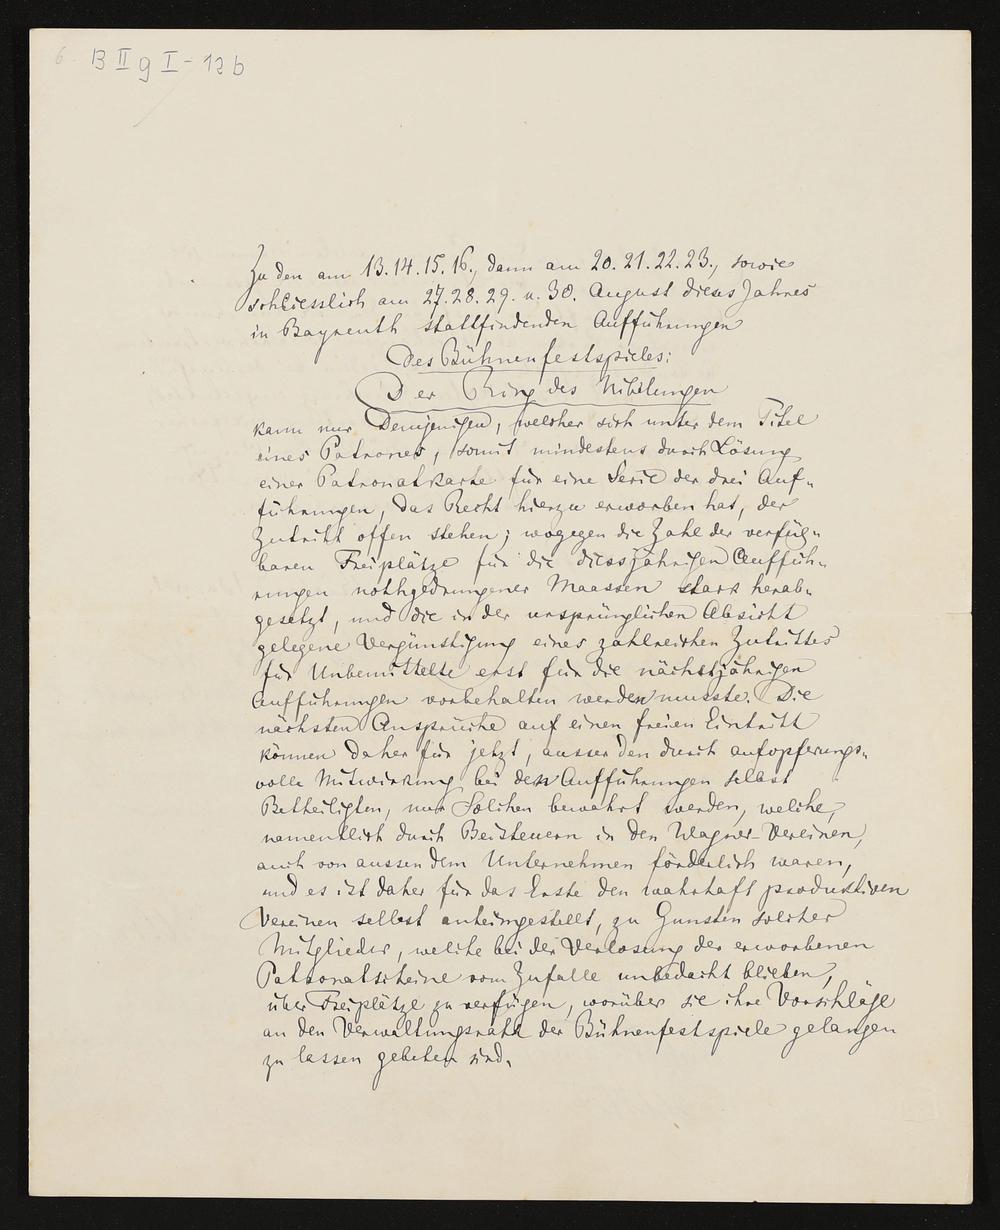 6. B II g I - 12 b
Zu den am 13. 14. 15. 16., dann am 20. 21. 22. 23., sowie
schliesslich am 27. 28. 29. u. 30. August dieses Jahres
in Bayreuth stattfindenden Aufführungen
des Bühnenfestspieles:
Der Ring des Nibelungen
kann nur Demjenigen, welcher sich unter dem Titel
eines Patrones, somit mindestens durch Lösung
einer Patronatkarte für eine Serie der drei Auf-
führungen, das Recht hierzu erworben hat, der
Zutritt offen stehen; wogegen die Zahl der verfüg-
baren Freiplätze für die diessjährigen Auffüh-
rungen nothgedrungener Maassen stark herab-
gesetzt, und die in der ursprünglichen Absicht
gelegene Vergünstigung eines zahlreichen Zutrittes
für Unbemittelte erst für die nächstjährigen
Aufführungen vorbehalten werden musste. Die
nächsten Ansprüche auf einen freien Eintritt
können daher für jetzt, ausser den durch aufopferungs-
volle Mitwirkung bei den Aufführungen selbst
Betheiligten, nur Solchen bewahrt werden, welche,
namentlich durch Beisteuern in den Wagner-Vereinen,
auch von aussen dem Unternehmen förderlich waren,
und es ist daher für das Erste den wahrhaft produktiven
Vereinen selbst anheimgestellt, zu Gunsten solcher
Mitglieder, welche bei der Verlosung der erworbenen
Patronatscheine vom Zufalle unbedacht blieben,
über Freiplätze zu verfügen, worüber sie ihre Vorschläge
an den Verwaltungsrath der Bühnenfestspiele gelangen
zu lassen gebeten sind.